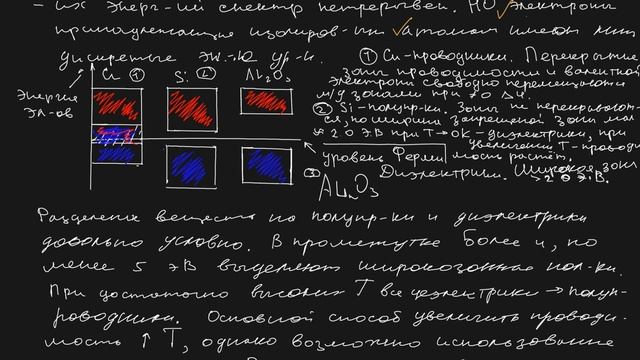 - их энерг-ий спектр непрерывен. НО электроны
принадлежащие изолиров-ным атомам имеют
дискретные эн-ие ур-и.
Энергия эл-ов
Cu ①
Si ②
Al₂O₃
① Cu-проводники. Перекрытие
зоны проводимости и валентной
электроны свободно перемещаются
м/д зонами при
② Si-полупр-ки. Зоны не перекрывают
ся, но ширина запрещенной зоны мал
2.0 эВ при T→0K-диэлектрики, при
увеличении T-проводи
мость растёт.
уровень Ферми
③ Al₂O₃
Диэлектрики. Широкая зона
> 2.0 эВ.
Разделение веществ на полупр-ки и диэлектрики
довольно условно. В промежутке более и, но
менее 5 эВ выделяют широкозонные пол-ки.
При достаточно высоких T все диэлектрики → полуп-
роводники. Основной способ увеличить проводи-
мость ↑ T, однако возможно использование